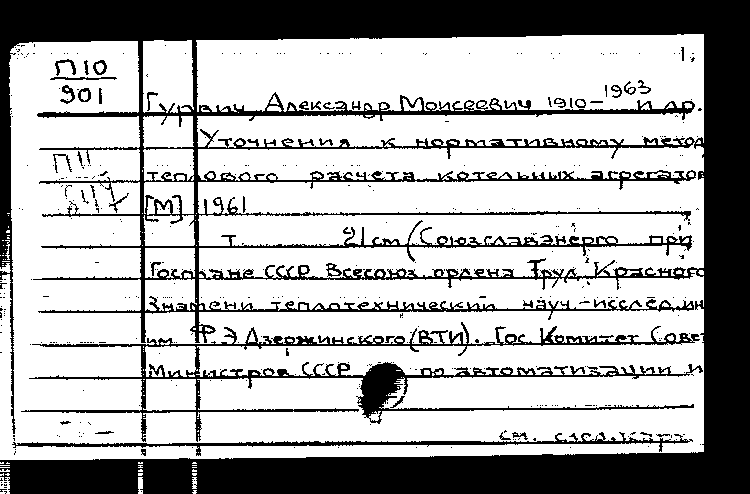 1.
П10
901
Гурвич, Александр Моисеевич, 1910-1963 и др.
Уточнения к нормативному метод
П11
теплового расчета котельных агрегатов
[М] 1961
т 21 cm (Союзглавэнерго при
Госплане СССР. Всесоюз. ордена Труд. Красного
Знамени теплотехнический науч.-исслед. ин
им Ф.Э. Дзержинского (ВТИ). Гос. Комитет Совет
Министров СССР по автоматизации и
см. след. карт.